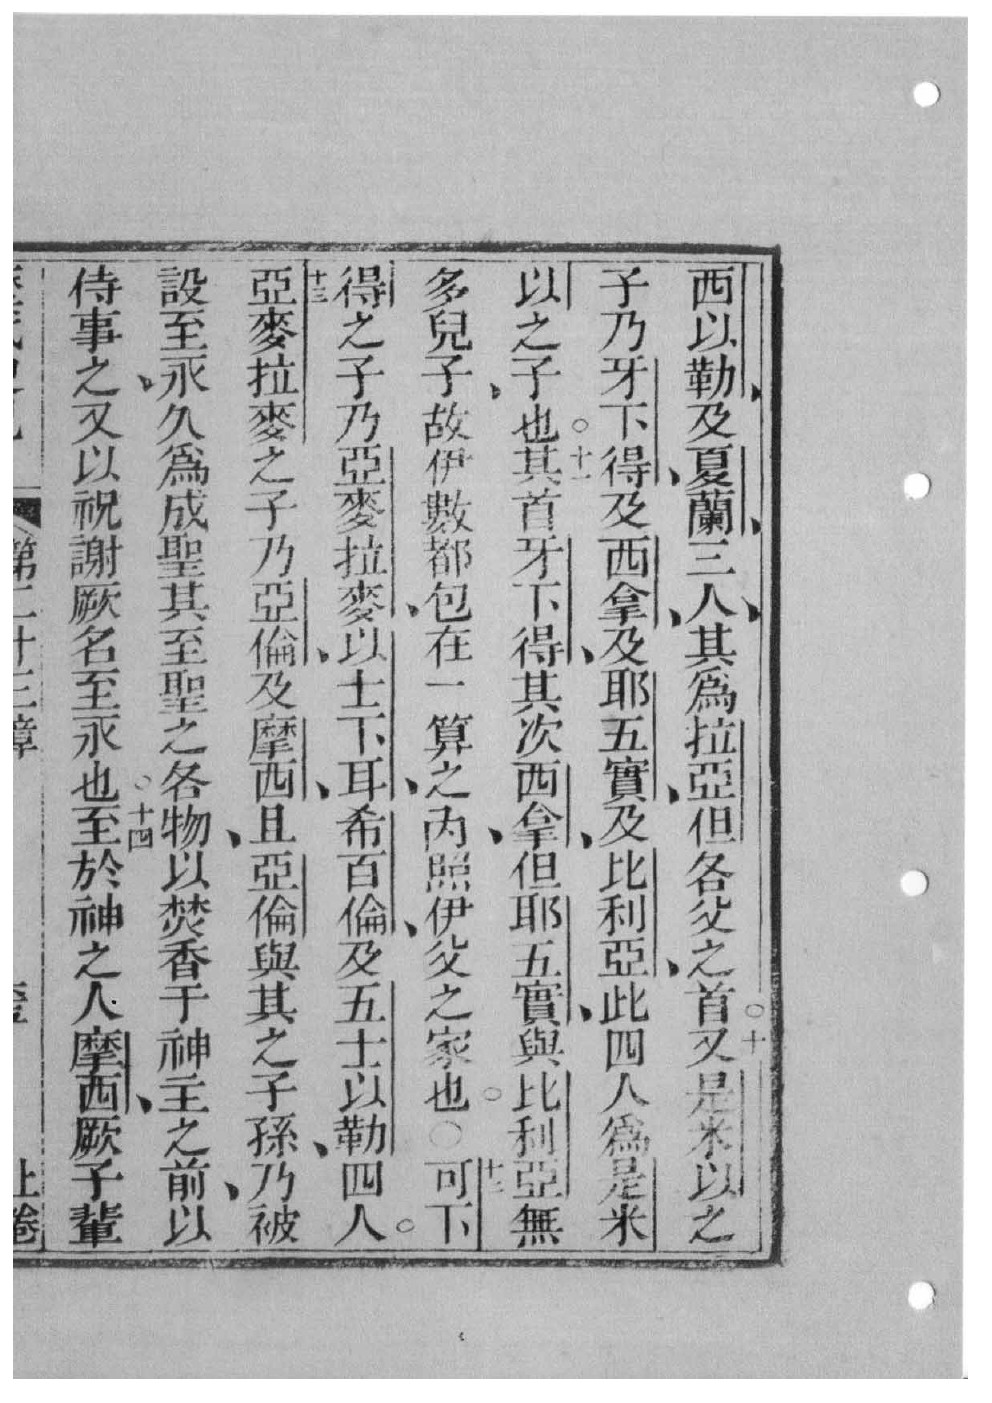 西以勒、及夏蘭、三人、其爲拉亞但各父之首。十又是米以之
子乃牙下得、及西拿、及耶五實、及比利亞、此四人爲是米
以之子也。十一其首牙下得、其次西拿、但耶五實、與比利亞無
多兒子、故伊數都包在一算之內、照伊父之家也。○十二可下
得之子乃亞麥拉麥、以士下耳、希百倫、及五士以勒四人。
十三亞麥拉麥之子乃亞倫、及摩西、且亞倫與其之子孫、乃被
設至永久爲成聖其至聖之各物、以焚香于神主之前、以
侍事之、又以祝謝厥名至永也。十四至於神之人摩西、厥子輩
第二十三章
上卷